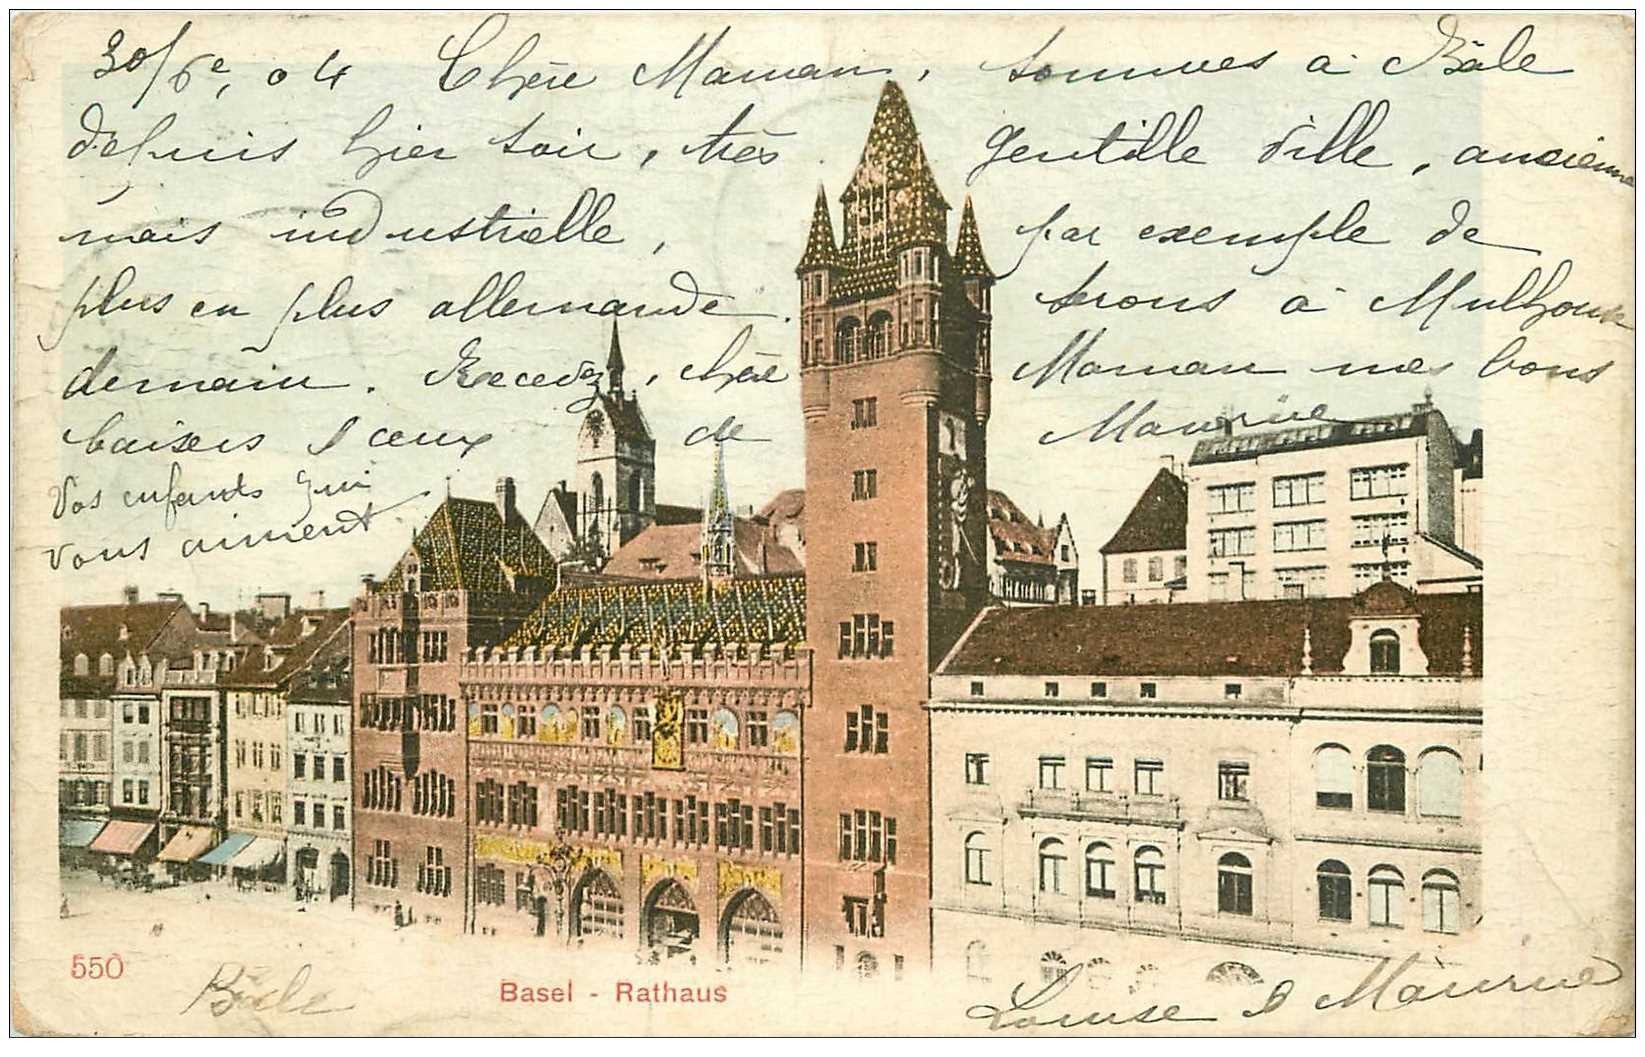 30/6e, 04 Chère Maman, sommes à Bâle
depuis hier soir, très gentille ville, ancienne
mais industrielle, par exemple de
plus en plus allemande. serons à Mulhouse
demain. Recevez, chère Maman mes bons
baisers & ceux de Maurice
Vos enfants qui
vous aiment
550
Bâle
Basel - Rathaus
Louise & Maurice